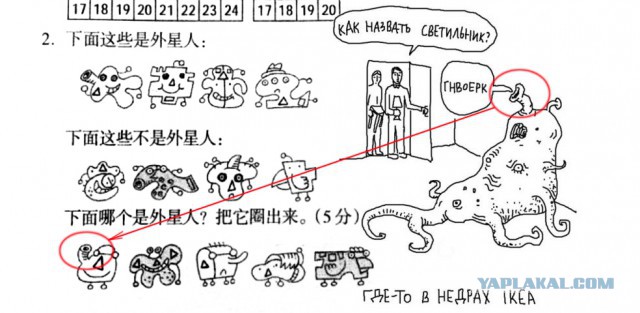 17 18 19 20 21 22 23 24
17 18 19 20
2. 下面这些是外星人：
下面这些不是外星人：
下面哪个是外星人？把它圈出来。（5分）
КАК НАЗВАТЬ СВЕТИЛЬНИК?
ГНВОЕРК
ГДЕ-ТО В НЕДРАХ IKEA
YAPLAKAL.COM